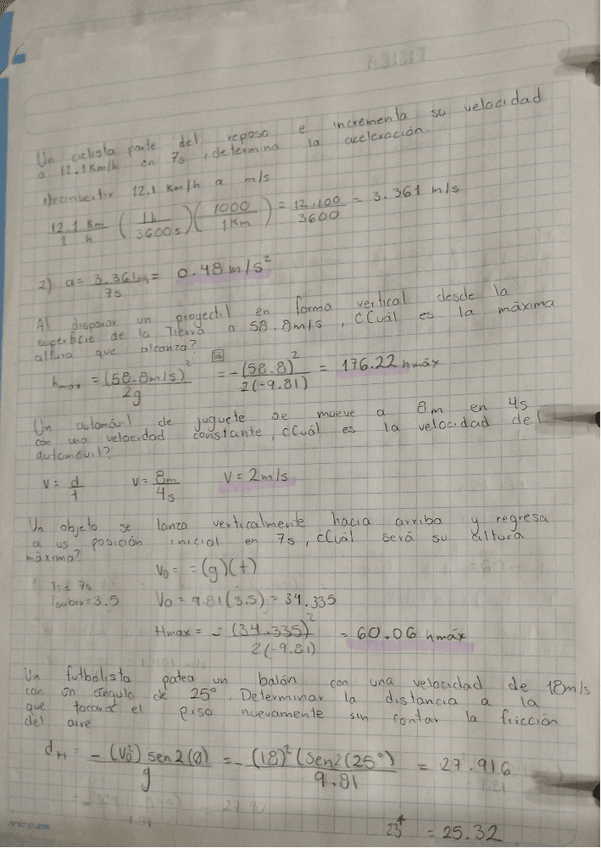 FISICA
Un ciclista parte del reposo e incrementa su velocidad
a 12.1 Km/h en 7s, determina la aceleración
1) convertir 12.1 Km/h a m/s
12.1 Km/1 h (1h/3600s)(1000/1Km) = 12,100/3600 = 3.361 m/s
2) a = 3.361/7s = 0.48 m/s²
Al disparar un proyectil en forma vertical desde la
superficie de la Tierra a 58.8m/s, ¿Cuál es la máxima
altura que alcanza?
hmax = (58.8m/s)²/2g = -(58.8)²/2(-9.81) = 176.22 hmáx
Un automóvil de juguete se mueve a 8m en 4s
con una velocidad constante, ¿Cuál es la velocidad del
automóvil?
V = d/t V = 8m/4s V = 2m/s
Un objeto se lanza verticalmente hacia arriba y regresa
a us posición inicial en 7s, ¿Cuál será su altura
máxima?
V0 = = (g)(t)
= 7s
Tsubir = 3.5 V0 = 9.81(3.5) = 34.335
Hmax = -(34.335)²/2(-9.81) = 60.06 hmáx
Un futbolista patea un balón con una velocidad de 18m/s
con un ángulo de 25°. Determinar la distancia a la
que tocará el piso nuevamente sin contar la fricción
del aire.
dH = -(V0²) sen2(θ)/g = -(18)²(Sen2(25°)/9.81 = 27.916
= 25.32